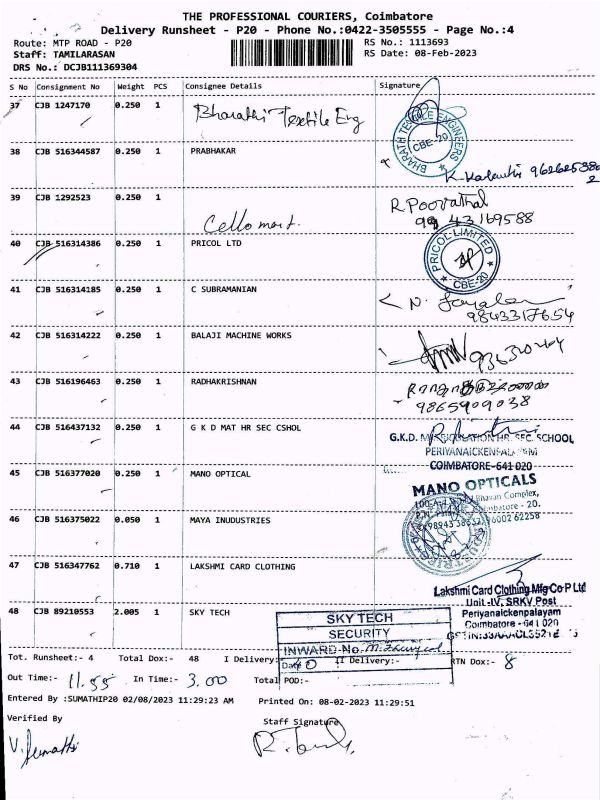 THE PROFESSIONAL COURIERS, Coimbatore
Delivery Runsheet - P20 - Phone No.:0422-3505555 - Page No.:4
Route: MTP ROAD - P20
RS No.: 1113693
Staff: TAMILARASAN
RS Date: 08-Feb-2023
DRS No.: DCJB111369304
S No Consignment No Weight PCS Consignee Details Signature
37 CJB 1247170 0.250 1 Bharathi Textile Eng
BHARATH TEXTILE ENGINEERS
CBE-20
38 CJB 516344587 0.250 1 PRABHAKAR
39 CJB 1292523 0.250 1 Cello mart.
R Poovathal
99 43169588
40 CJB 516314386 0.250 1 PRICOL LTD
PRICOL LIMITED
CBE-20
41 CJB 516314185 0.250 1 C SUBRAMANIAN
9843317654
42 CJB 516314222 0.250 1 BALAJI MACHINE WORKS
43 CJB 516196463 0.250 1 RADHAKRISHNAN
9865909038
44 CJB 516437132 0.250 1 G K D MAT HR SEC CSHOL
G.K.D. MATRICULATION HR. SEC. SCHOOL
PERIYANAICKENPALAYAM
COIMBATORE-641 020
45 CJB 516377020 0.250 1 MANO OPTICAL
MANO OPTICALS
Bhavan Complex,
Coimbatore - 20.
46 CJB 516375022 0.050 1 MAYA INUDUSTRIES
47 CJB 516347762 0.710 1 LAKSHMI CARD CLOTHING
Lakshmi Card Clothing Mfg Co P Ltd
Unit -IV, SRKV Post
Periyanaickenpalayam
Coimbatore - 641 020
48 CJB 89210553 2.005 1 SKY TECH
SKY TECH
SECURITY
INWARD-No.
Date
Tot. Runsheet:- 4 Total Dox:- 48 I Delivery: II Delivery:- RTN Dox:- 8
Out Time:- 11.55 In Time:- 3.00 Total POD:-
Entered By :SUMATHIP20 02/08/2023 11:29:23 AM Printed On: 08-02-2023 11:29:51
Verified By Staff Signature
V. Sumathi